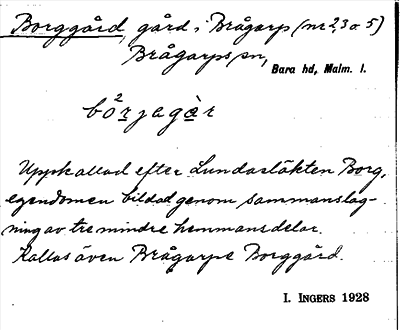 Borggård, gård i Brågarp (nr 2, 3 o. 5)
Brågarps sn,
Bara hd, Malm. l.
bo²rjagàr
Uppkallad efter Lundasläkten Borg,
egendomen bildad genom sammanslag-
ning av tre mindre hemmansdelar.
Kallas även Brågarps Borggård.
I. INGERS 1928